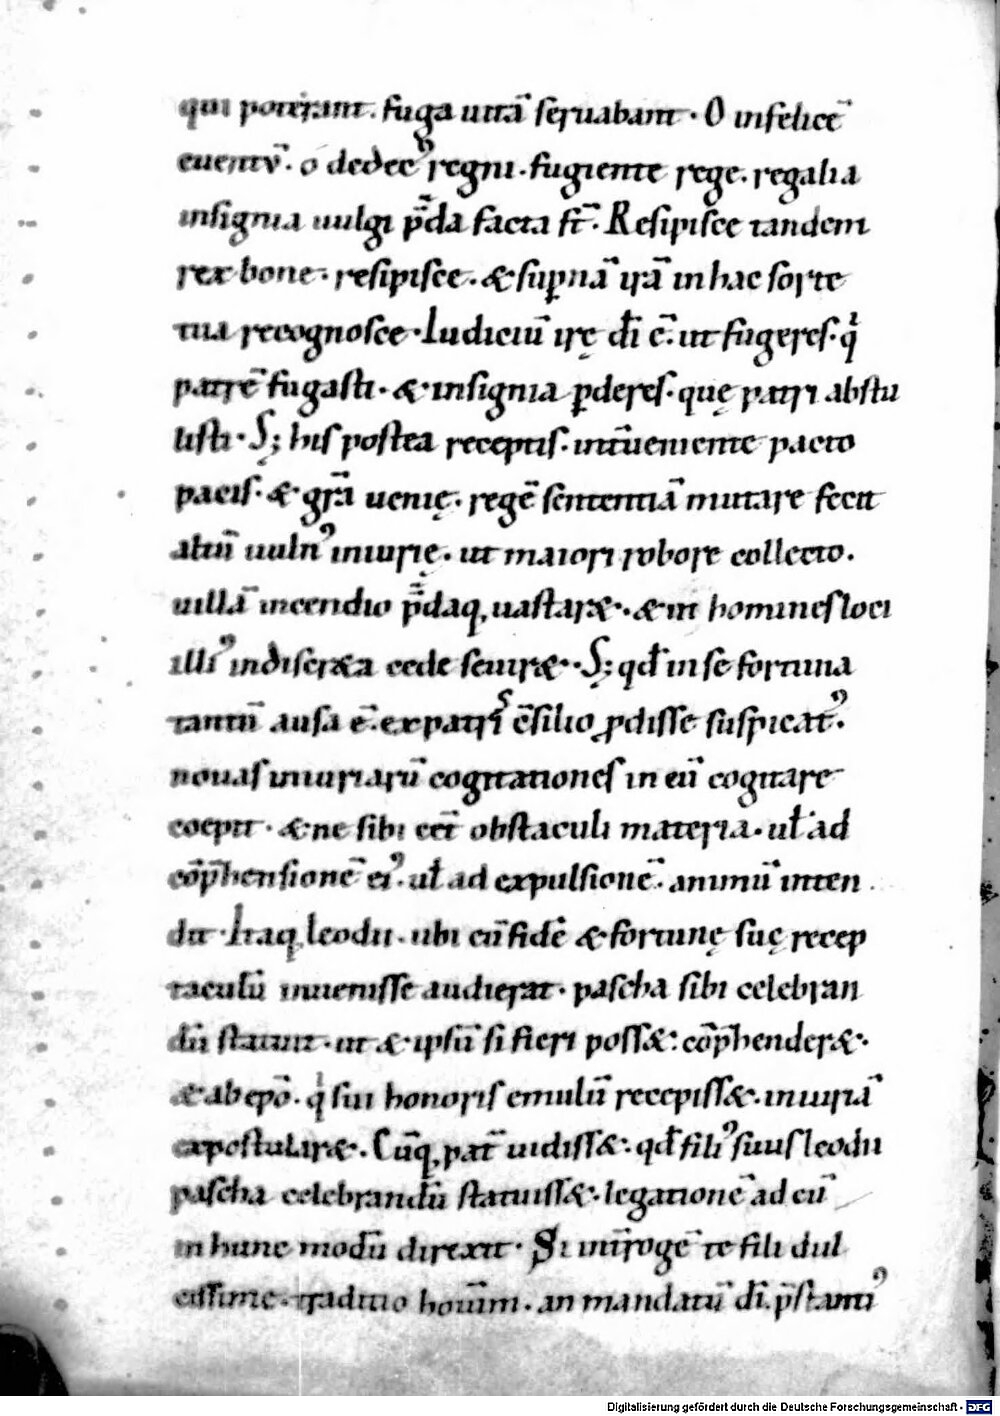 qui poterant. fuga uitā seruabant. O infelicē
euentv̄. o dedecꝰ regni. fugiente rege. regalia
insignia uulgi p̄da facta st̄. Resipisce tandem
rex bone. resipisce. & suꝑnā irā in hac sorte
tua recognosce. Iudiciū irę di̅ ē. ut fugeres. qͥ
patrē fugasti. & insignia ꝑderes. quę patri abstu
listi. S; his postea receptis. int̄ueniente pacto
pacis. & gr̄a uenię. regē sententiā mutare fecit
altū uulnꝰ iniurię. ut maiori robore collecto.
uillā incendio p̄daq; uastar&. & in homines loci
illiꝰ indiscr&a cede seuir&. S; qd̄ in se fortuna
tantū ausa ē. ex patris c̄silio ꝓdisse suspicatꝰ.
nouas iniuriarū cogitationes in eū cogitare
coepit. & ne sibi eēt obstaculi materia. ul̄ ad
cōp̄hensionē eiꝰ. ul̄ ad expulsionē. animū inten
dit. Itaq; leodii. ubi eū fidē & fortunę suę recep
taculū inuenisse audierat. pascha sibi celebran
dū statuit. ut & ipsū si fieri poss&. cōp̄hender&.
& ab ep̄o. qͥ sui honoris emulū recepiss&. iniuriā
expostular&. Cūq; pat̄ uidiss&. qd̄ filiꝰ suus leodii
pascha celebrandū statuiss&. legationē ad eū
in hunc modū direxit. Si int̄rogē te fili dul
cissime. traditio houīm. an mandatū di̅. p̄stantiꝰ
Digitalisierung gefördert durch die Deutsche Forschungsgemeinschaft - DFG